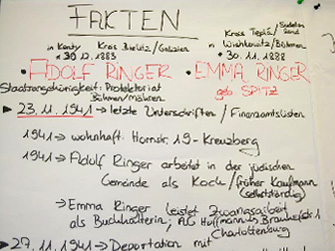 FAKTEN
in Kenty Kras Bielitz/Galizien
* 30.12.1883
Kras Teplá/Sudetenland
in Wischkowitz/Böhmen
* 30.11.1888
• ADOLF RINGER • EMMA RINGER
geb. SPITZ
Staatsangehörigkeit: Protektorat
Böhmen/Mähren
► 23.11.1941 → letzte Unterschriften / Finanzamtslisten
1941 → wohnhaft: Hornstr. 19 - Kreuzberg
1941 → Adolf Ringer arbeitet in der jüdischen
Gemeinde als Koch/früher Kaufmann
(selbstständig)
→ Emma Ringer leistet Zwangsarbeit
als Buchhalterin; AG Hoffmann,
Charlottenburg
► 27.11.1941 → Deportation mit